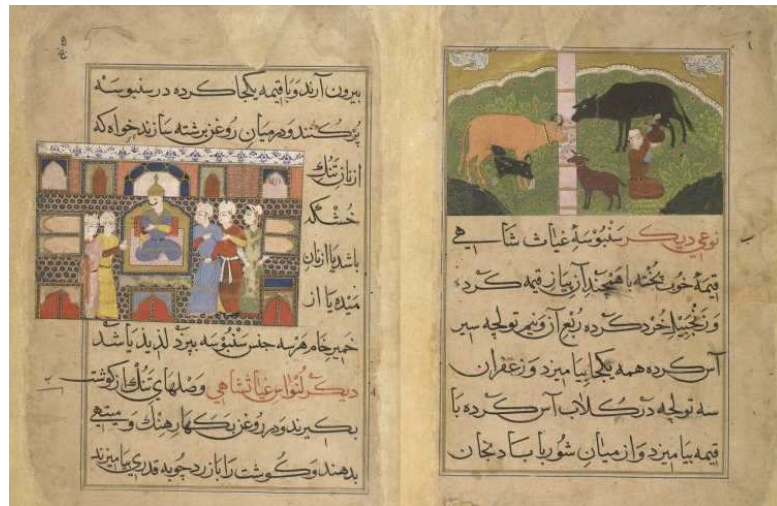 نوعی دیگر سنبوسهٔ غیاث شاهی
قیمهٔ خوب پخته با همچند آن پیاز قیمه کرده
و زنجبیل خرد کرده ربع آن و نیم تولچه سیر
آس کرده همه یکجا بیامیزد و زعفران
سه تولچه در کلاب آس کرده با
قیمه بیامیزد و از میان شوربا بادنجان
بیرون آرند و با قیمه یکجا کرده در سنبوسه
پر کنند و در میان روغن برشته سازند خواه که
از نان تنک
خشکه
باشد یا از نان
میده یا از
خمیر خام هر سه جنس سنبوسه بپزد لذیذ باشد
دیکر لنواس غیاث شاهی وصلهای تنک از کوشت
بکیرند و در روغن بکهار هنک و میتهی
بدهند و کوشت را با زردچوبه قدری بیامیزند